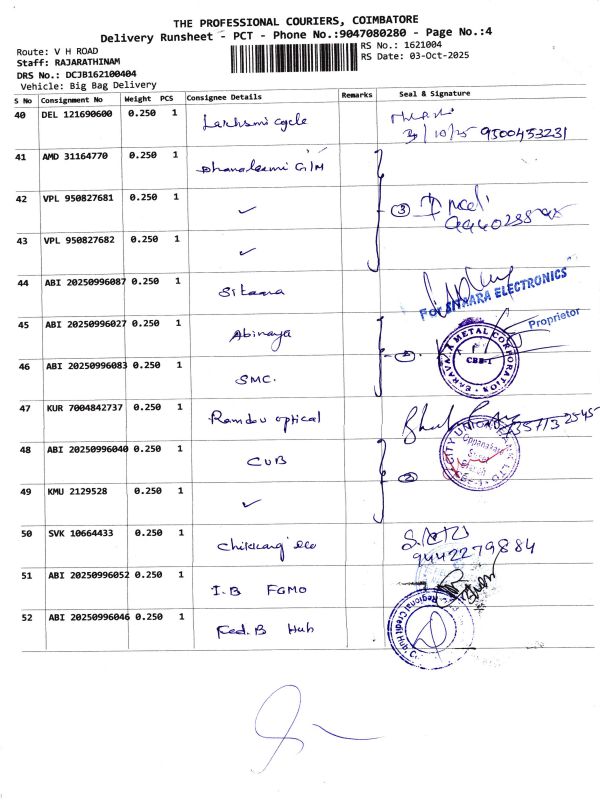 THE PROFESSIONAL COURIERS, COIMBATORE
Delivery Runsheet - PCT - Phone No.:9047080280 - Page No.:4
Route: V H ROAD
Staff: RAJARATHINAM
DRS No.: DCJB162100404
Vehicle: Big Bag Delivery
RS No.: 1621004
RS Date: 03-Oct-2025
S No Consignment No Weight PCS Consignee Details Remarks Seal & Signature
40 DEL 121690600 0.250 1 Lakhsmi cycle
3/10/25 9500453231
41 AMD 31164770 0.250 1 Dhanalaxmi G/M
42 VPL 950827681 0.250 1 ✓ 3
43 VPL 950827682 0.250 1 ✓
44 ABI 20250996087 0.250 1 Sitaara
For SITAARA ELECTRONICS
Proprietor
45 ABI 20250996027 0.250 1 Abinaya
METAL CORPORATION
CBE-1
46 ABI 20250996083 0.250 1 SMC.
47 KUR 7004842737 0.250 1 Ramdev optical
48 ABI 20250996040 0.250 1 CUB
CITY UNION BANK LTD
49 KMU 2129528 0.250 1 ✓
50 SVK 10664433 0.250 1
9442279884
51 ABI 20250996052 0.250 1 I.B FGMO
52 ABI 20250996046 0.250 1 Fed.B Hub
Regional Credit Hub,